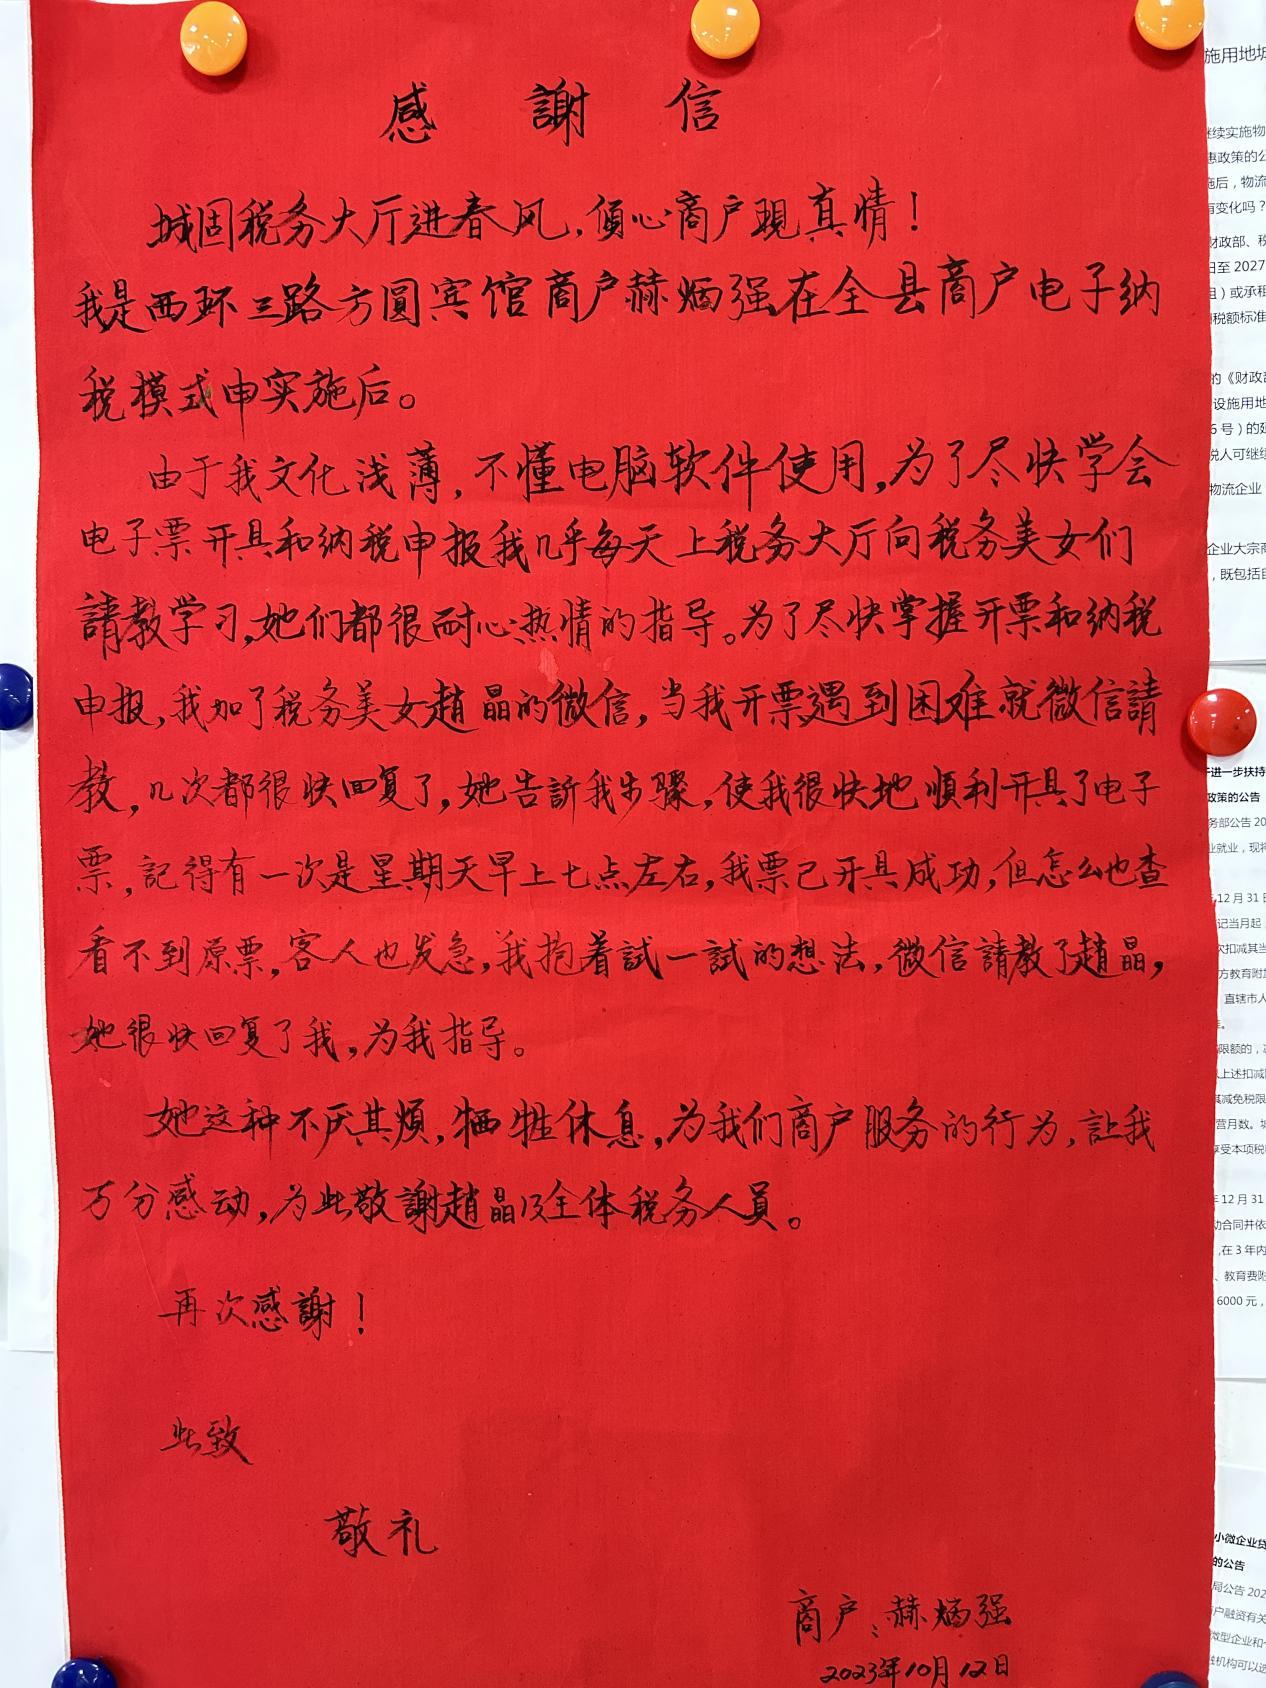 感謝信
城固税务大厅进春风，傾心商户現真情！
我是西环三路方圓宾馆商户赫炳强在全县商户电子纳
税模式申实施后。
由于我文化浅薄，不懂电脑软件使用，为了尽快学会
电子票开具和纳税申报我几乎每天上税务大厅向税务美女们
請教学习，她们都很耐心热情的指导。为了尽快掌握开票和纳税
申报，我加了税务美女趙晶的微信，当我开票遇到困难就微信請
教，几次都很快回复了，她告訴我步骤，使我很快地順利开具了电子
票，記得有一次是星期天早上七点左右，我票已开具成功，但怎么也查
看不到原票，客人也发急，我抱着試一試的想法，微信請教了趙晶，
她很快回复了我，为我指导。
她这种不厌其煩，牺牲休息，为我们商户服务的行为，让我
万分感动，为此敬謝趙晶及全体税务人員。
再次感謝！
此致
敬礼
商户：赫炳强
2023年10月12日
施用地城
继续实施物
惠政策的公
施后，物流
有变化吗？
财政部、税
日至2027
租）或承租
税额标准
的《财政部
设施用地
6号）的规
税人可继续
物流企业
企业大宗商
，既包括自
进一步扶持
政策的公告
务部公告20
业就业，现将
12月31日
记当月起
次扣减其当
方教育附加
直辖市人
限额的，
以上述扣减
其减免税限
营月数。
享受本项税
年12月31
动合同并依
，在3年内
、教育费附
6000元，
小微企业贷
的公告
局公告202
户融资有关
微型企业和个
融机构可以选